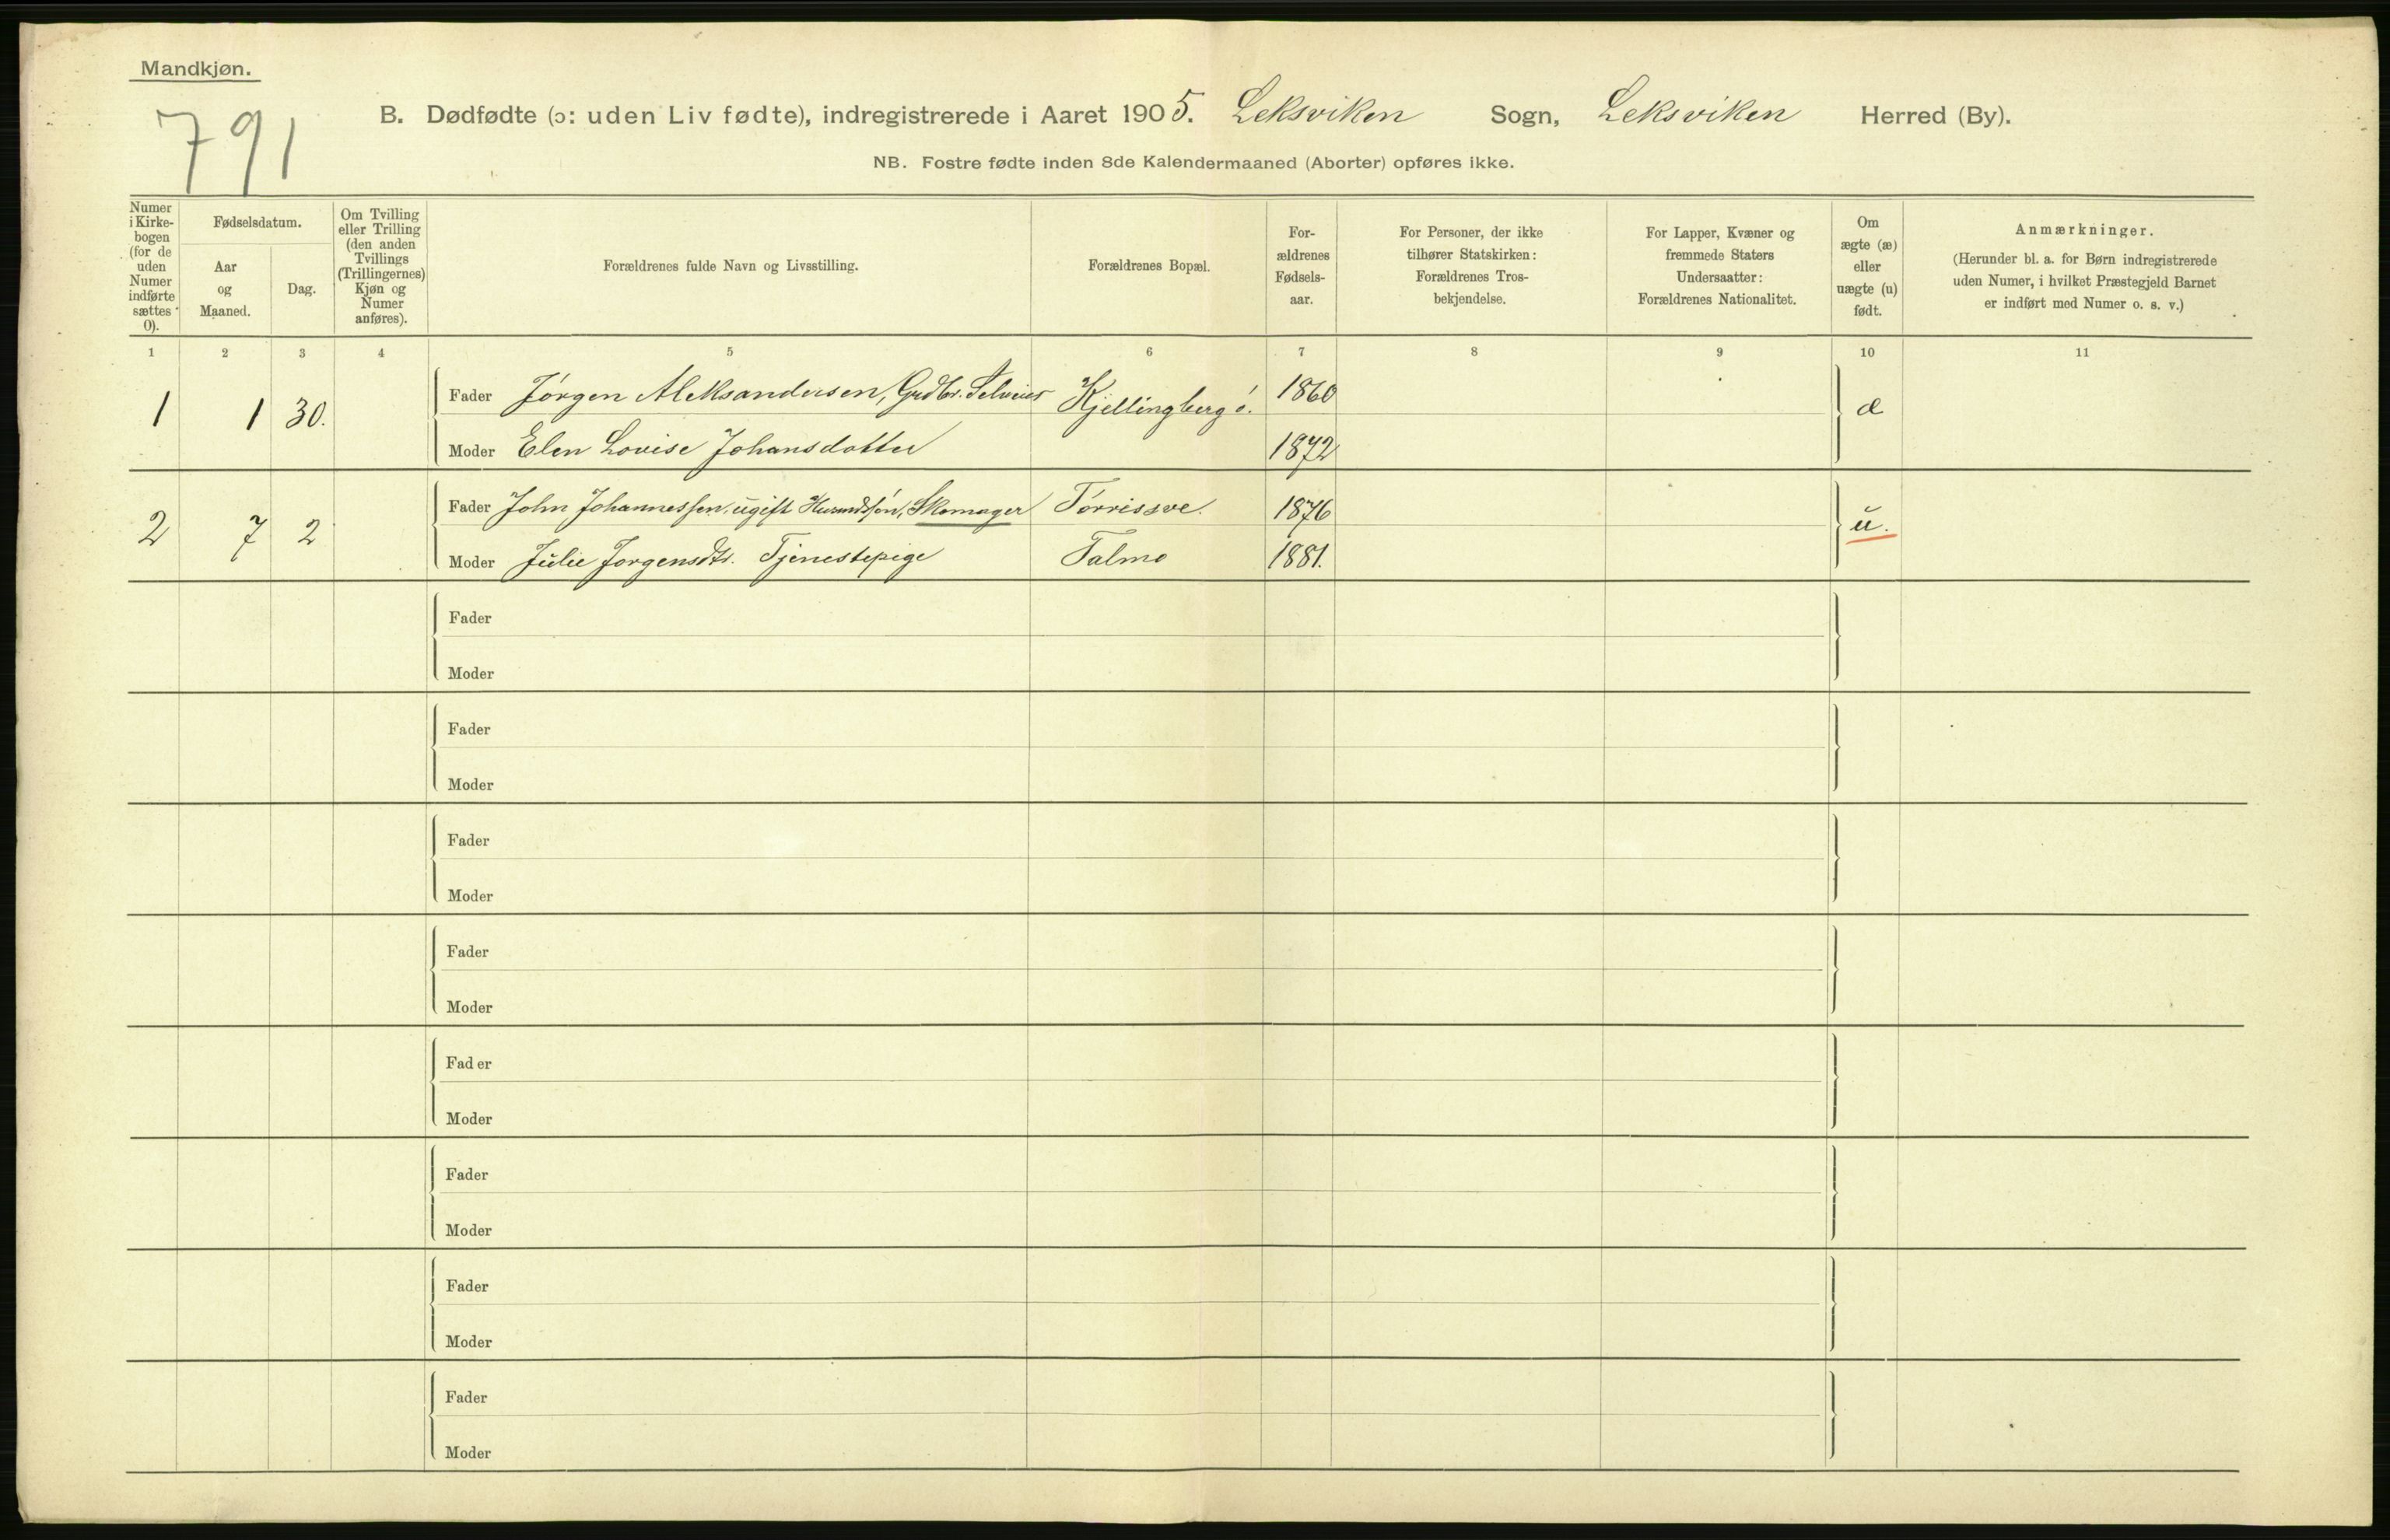 Mandkjøn.
791
B. Dødfødte (ɔ: uden Liv fødte), indregistrerede i Aaret 1905. Leksviken Sogn, Leksviken Herred (By).
NB. Fostre fødte inden 8de Kalendermaaned (Aborter) opføres ikke.
Numer i Kirke-bogen (for de uden Numer indførte sættes 0).
Fødselsdatum.
Aar og Maaned.
Dag.
Om Tvilling eller Trilling (den anden Tvillings (Trillingernes) Kjøn og Numer anføres).
Forældrenes fulde Navn og Livsstilling.
Forældrenes Bopæl.
For-ældrenes Fødsels-aar.
For Personer, der ikke tilhører Statskirken: Forældrenes Tros-bekjendelse.
For Lapper, Kvæner og fremmede Staters Undersaatter: Forældrenes Nationalitet.
Om ægte (æ) eller uægte (u) født.
Anmærkninger.
(Herunder bl. a. for Børn indregistrerede uden Numer, i hvilket Præstegjeld Barnet er indført med Numer o. s. v.)
1 2 3 4 5 6 7 8 9 10 11
1 1 30. Fader Jørgen Aleksandersen, Grdbr. Selveier Kjellingberg ø. 1860 æ
Moder Elen Lovise Johansdatter 1872
2 7 2 Fader John Johannessen, ugift Husmdssøn, Skomager Tørrissve. 1876 u.
Moder Julie Jørgensdtr. Tjenestepige Talmo 1881.
Fader
Moder
Fader
Moder
Fader
Moder
Fader
Moder
Fader
Moder
Fader
Moder
Fader
Moder
Fader
Moder